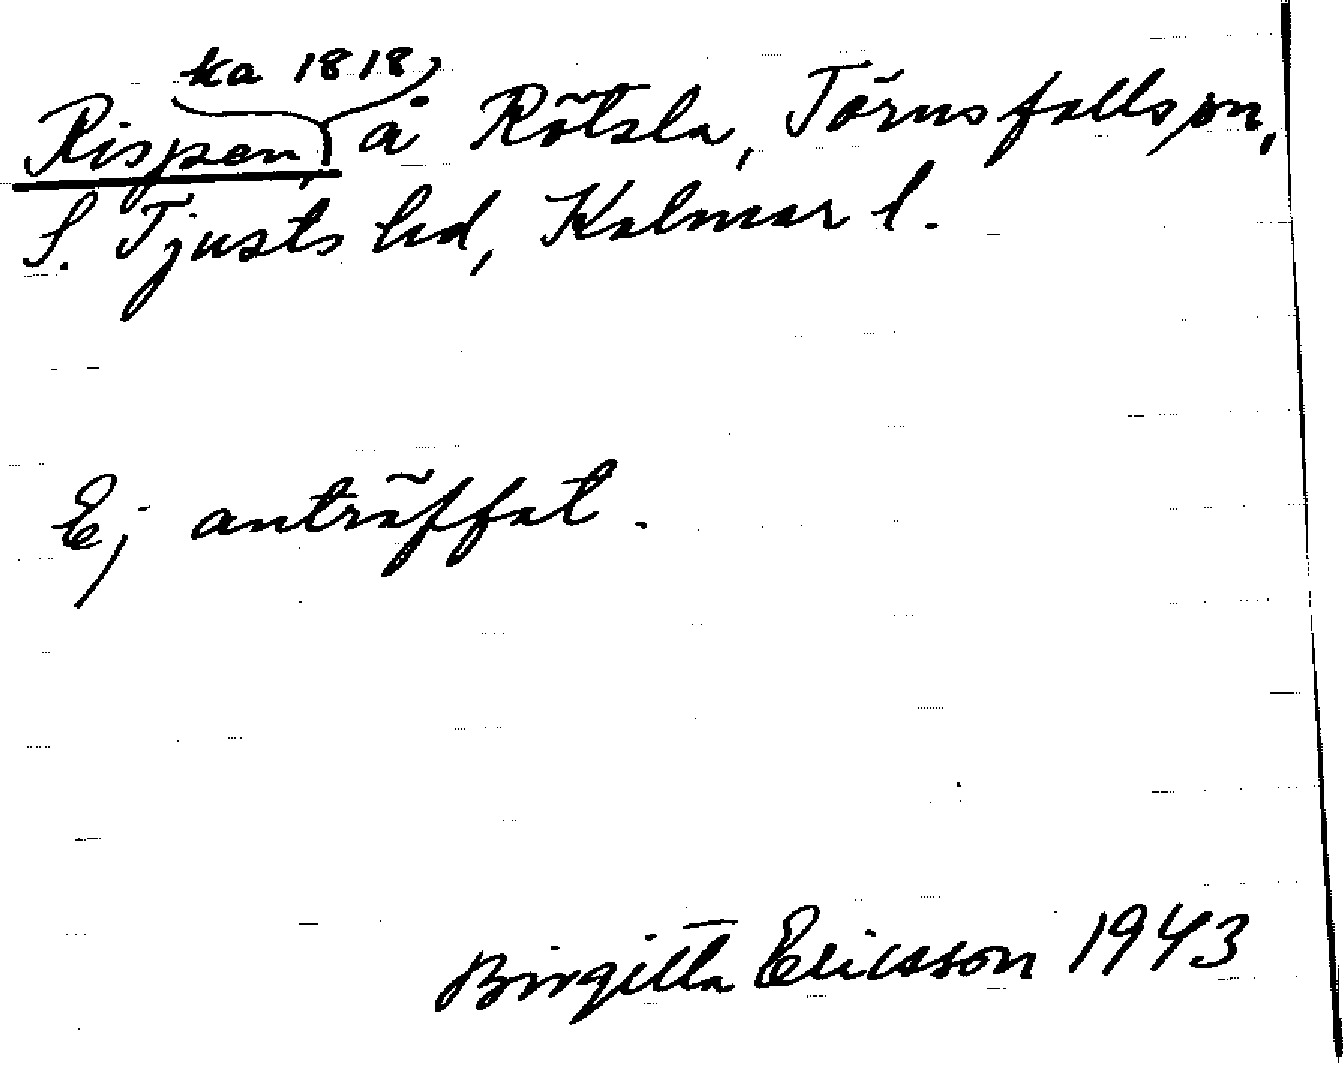 ka 1818,
Rispen, å Rötsla, Törnsfalls sn,
S. Tjusts hd, Kalmar l.
Ej anträffat.
Birgitta Ericsson 1943